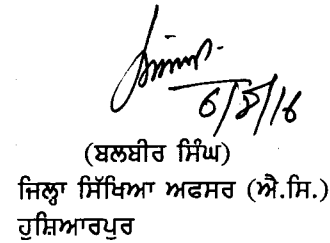 6/8/16
(ਬਲਬੀਰ ਸਿੰਘ)
ਜਿਲ੍ਹਾ ਸਿੱਖਿਆ ਅਫਸਰ (ਐ.ਸਿ.)
ਹੁਸ਼ਿਆਰਪੁਰ